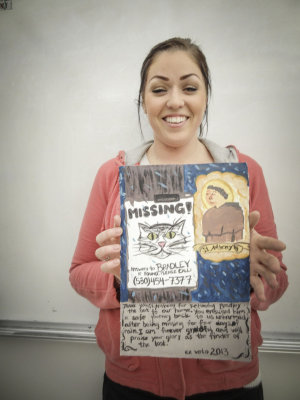 MISSING!
Answers to BRADLEY
if found PLEASE CALL!
(580)454-7377
St. Anthony
thank you St. Anthony for returning Bradley
the cat to our home. You ensured him
a safe journey back to us unharmed
after being missing for four days
rain. I am forever grateful and will
praise your glory as the finder of
the lost.
ex voto 2013